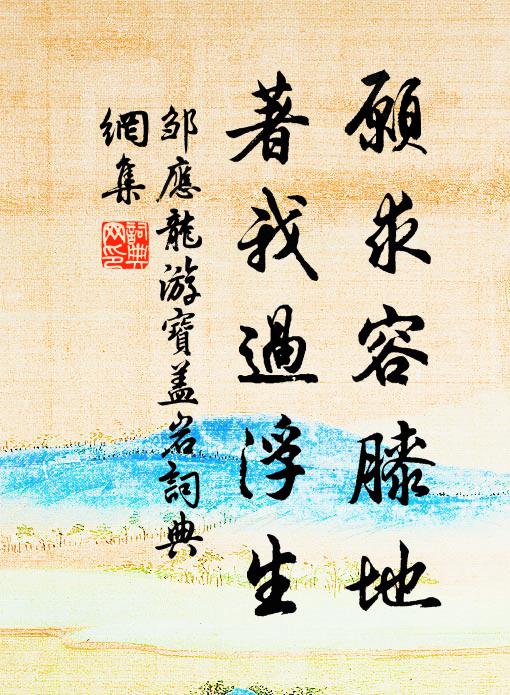 願求容膝地
著我過浮生
邹應龍游寶盖岩詞典
網集
詞典
网印